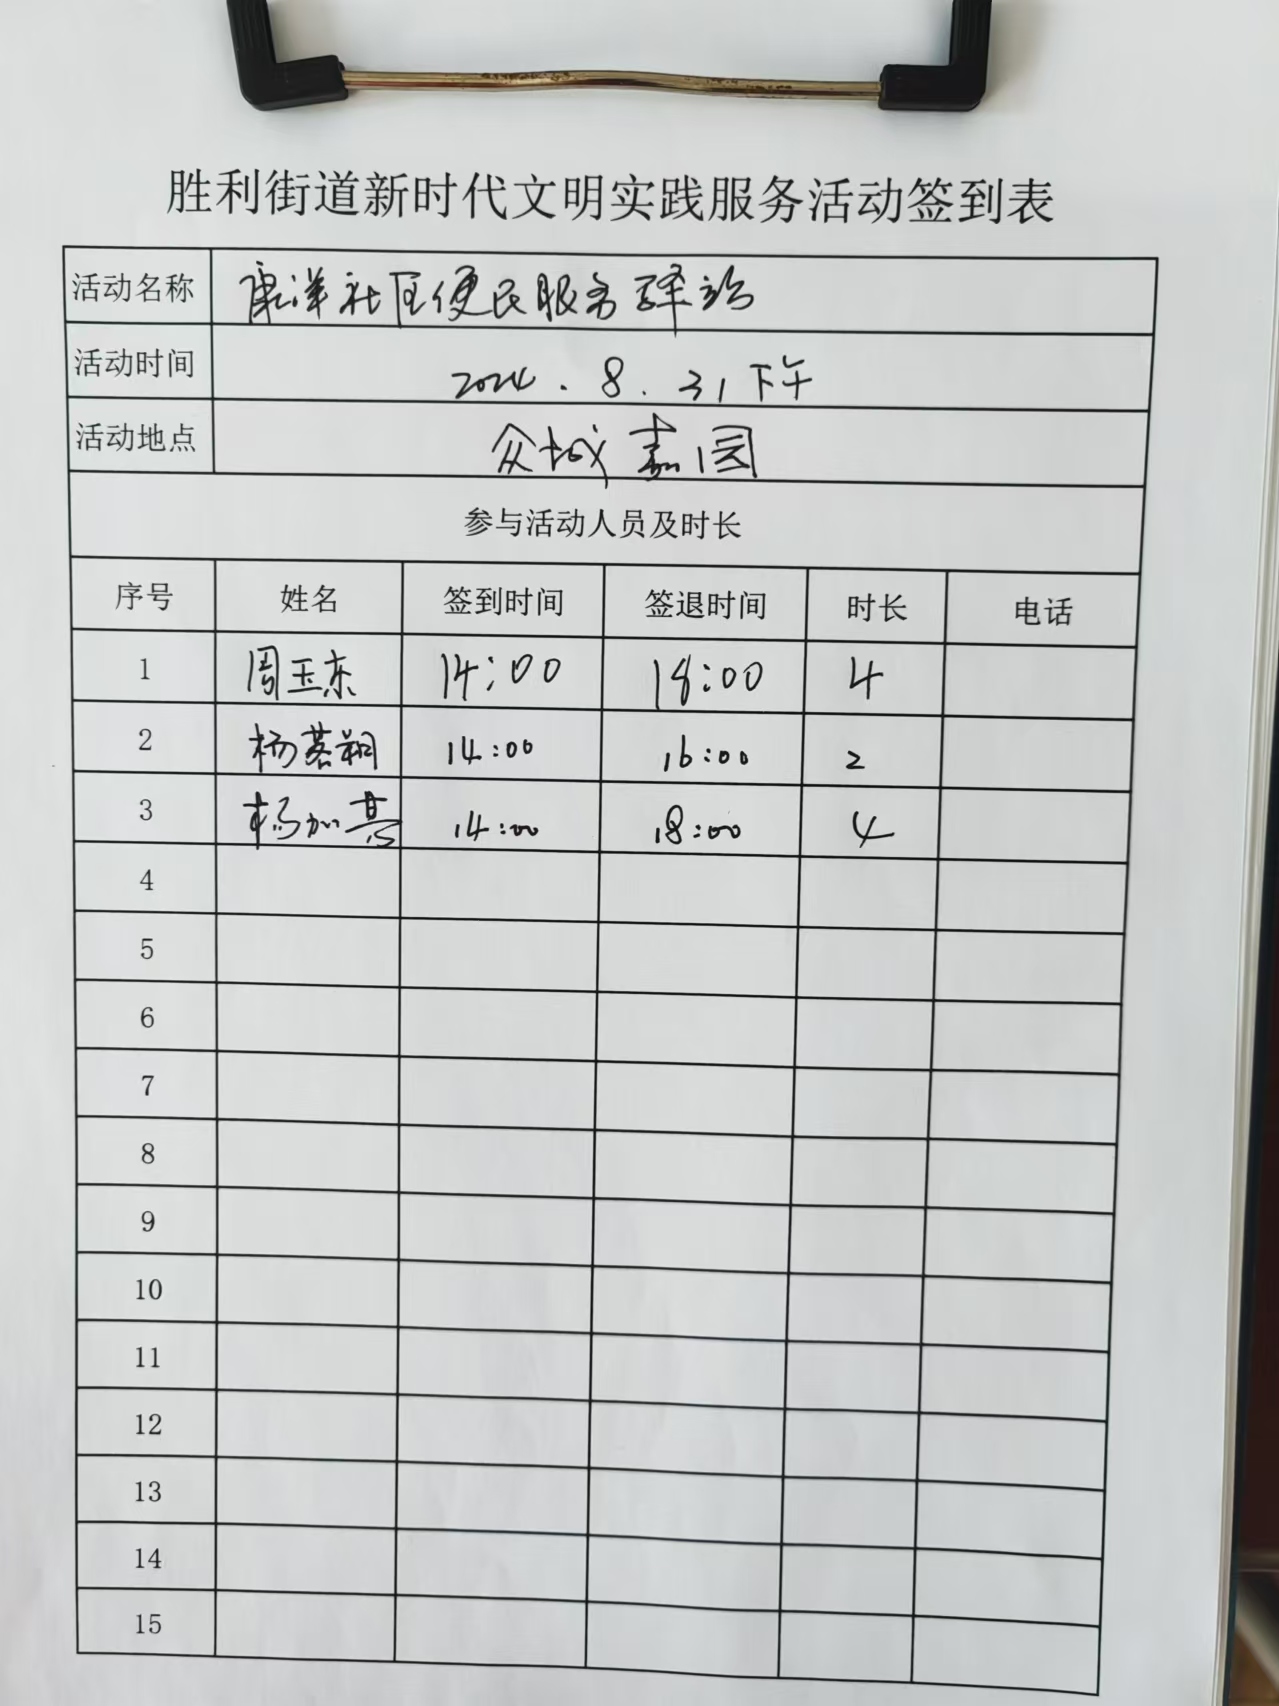 胜利街道新时代文明实践服务活动签到表
活动名称 康洋社区便民服务驿站
活动时间 2024.8.31下午
活动地点 众城嘉园
参与活动人员及时长
序号 姓名 签到时间 签退时间 时长 电话
1 周玉东 14:00 18:00 4
2 杨 14:00 16:00 2
3 杨加 14:00 18:00 4
4
5
6
7
8
9
10
11
12
13
14
15